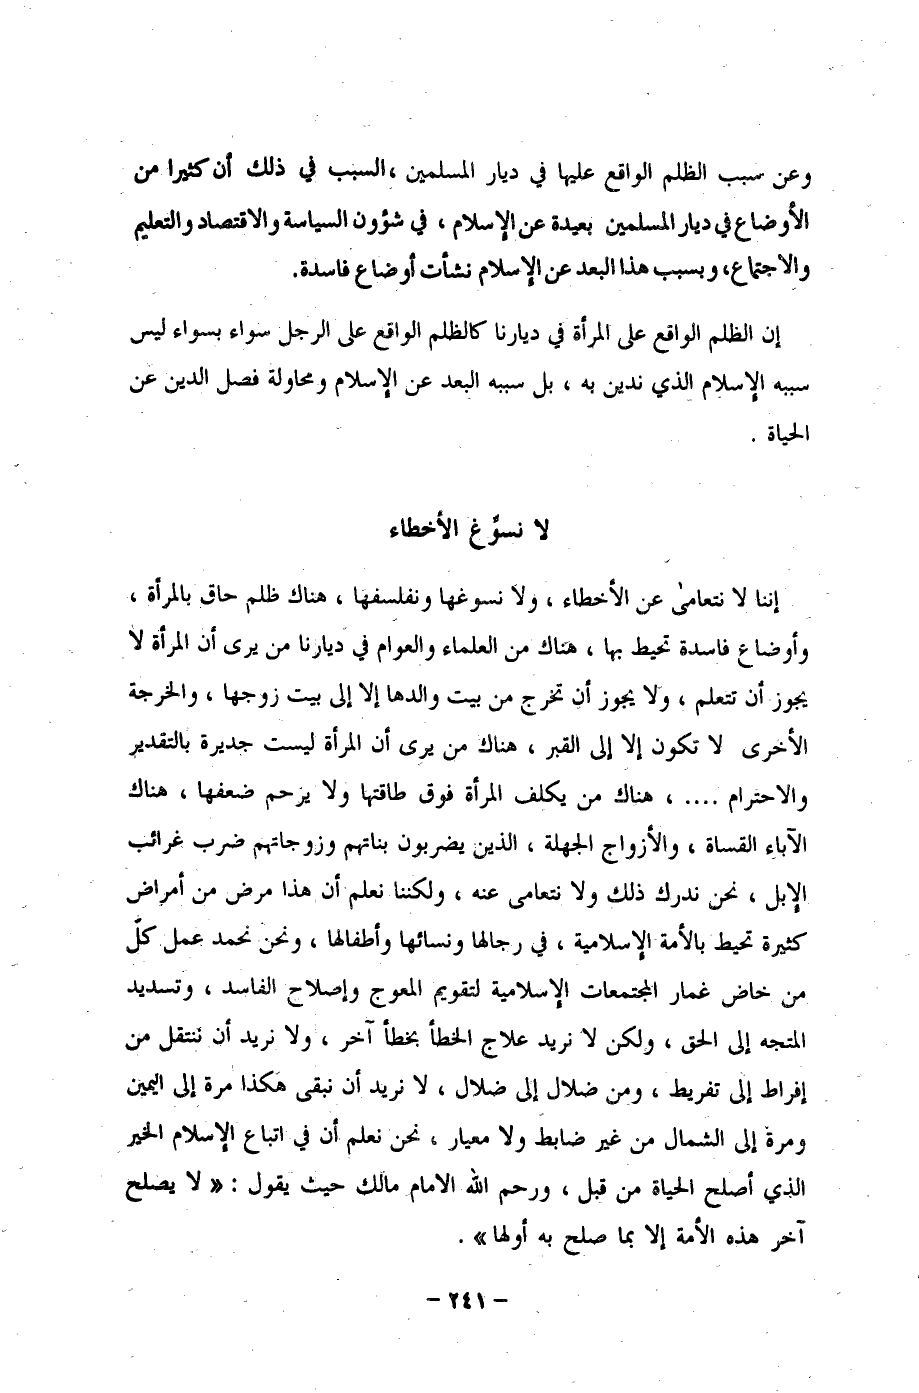 وعن سبب الظلم الواقع عليها في ديار المسلمين ،السبب في ذلك أن كثيرا من
الأوضاع في ديار المسلمين بعيدة عن الإسلام ، في شؤون السياسة والاقتصاد والتعليم
والاجتماع، وبسبب هذا البعد عن الإسلام نشأت أوضاع فاسدة.
إن الظلم الواقع على المرأة في ديارنا كالظلم الواقع على الرجل سواء بسواء ليس
سببه الإسلام الذي ندين به ، بل سببه البعد عن الإسلام ومحاولة فصل الدين عن
الحياة .
لا نسوِّغ الأخطاء
إننا لا نتعامىٰ عن الأخطاء ، ولا نسوغها ونفلسفها ، هناك ظلم حاق بالمرأة ،
وأوضاع فاسدة تحيط بها ، هناك من العلماء والعوام في ديارنا من يرى أن المرأة لا
يجوز أن تتعلم ، ولا يجوز أن تخرج من بيت والدها إلا إلى بيت زوجها ، والخرجة
الأخرى لا تكون إلا إلى القبر ، هناك من يرى أن المرأة ليست جديرة بالتقدير
والاحترام .... ، هناك من يكلف المرأة فوق طاقتها ولا يرحم ضعفها ، هناك
الآباء القساة ، والأزواج الجهلة ، الذين يضربون بناتهم وزوجاتهم ضرب غرائب
الإبل ، نحن ندرك ذلك ولا نتعامى عنه ، ولكننا نعلم أن هذا مرض من أمراض
كثيرة تحيط بالأمة الإسلامية ، في رجالها ونسائها وأطفالها ، ونحن نحمد عمل كلّ
من خاض غمار المجتمعات الإسلامية لتقويم المعوج وإصلاح الفاسد ، وتسديد
المتجه إلى الحق ، ولكن لا نريد علاج الخطأ بخطأ آخر ، ولا نريد أن ننتقل من
إفراط إلى تفريط ، ومن ضلال إلى ضلال ، لا نريد أن نبقى هكذا مرة إلى اليمين
ومرة إلى الشمال من غير ضابط ولا معيار ، نحن نعلم أن في اتباع الإسلام الخير
الذي أصلح الحياة من قبل ، ورحم الله الامام مالك حيث يقول : « لا يصلح
آخر هذه الأمة إلا بما صلح به أولها» .
– ٢٤١ –